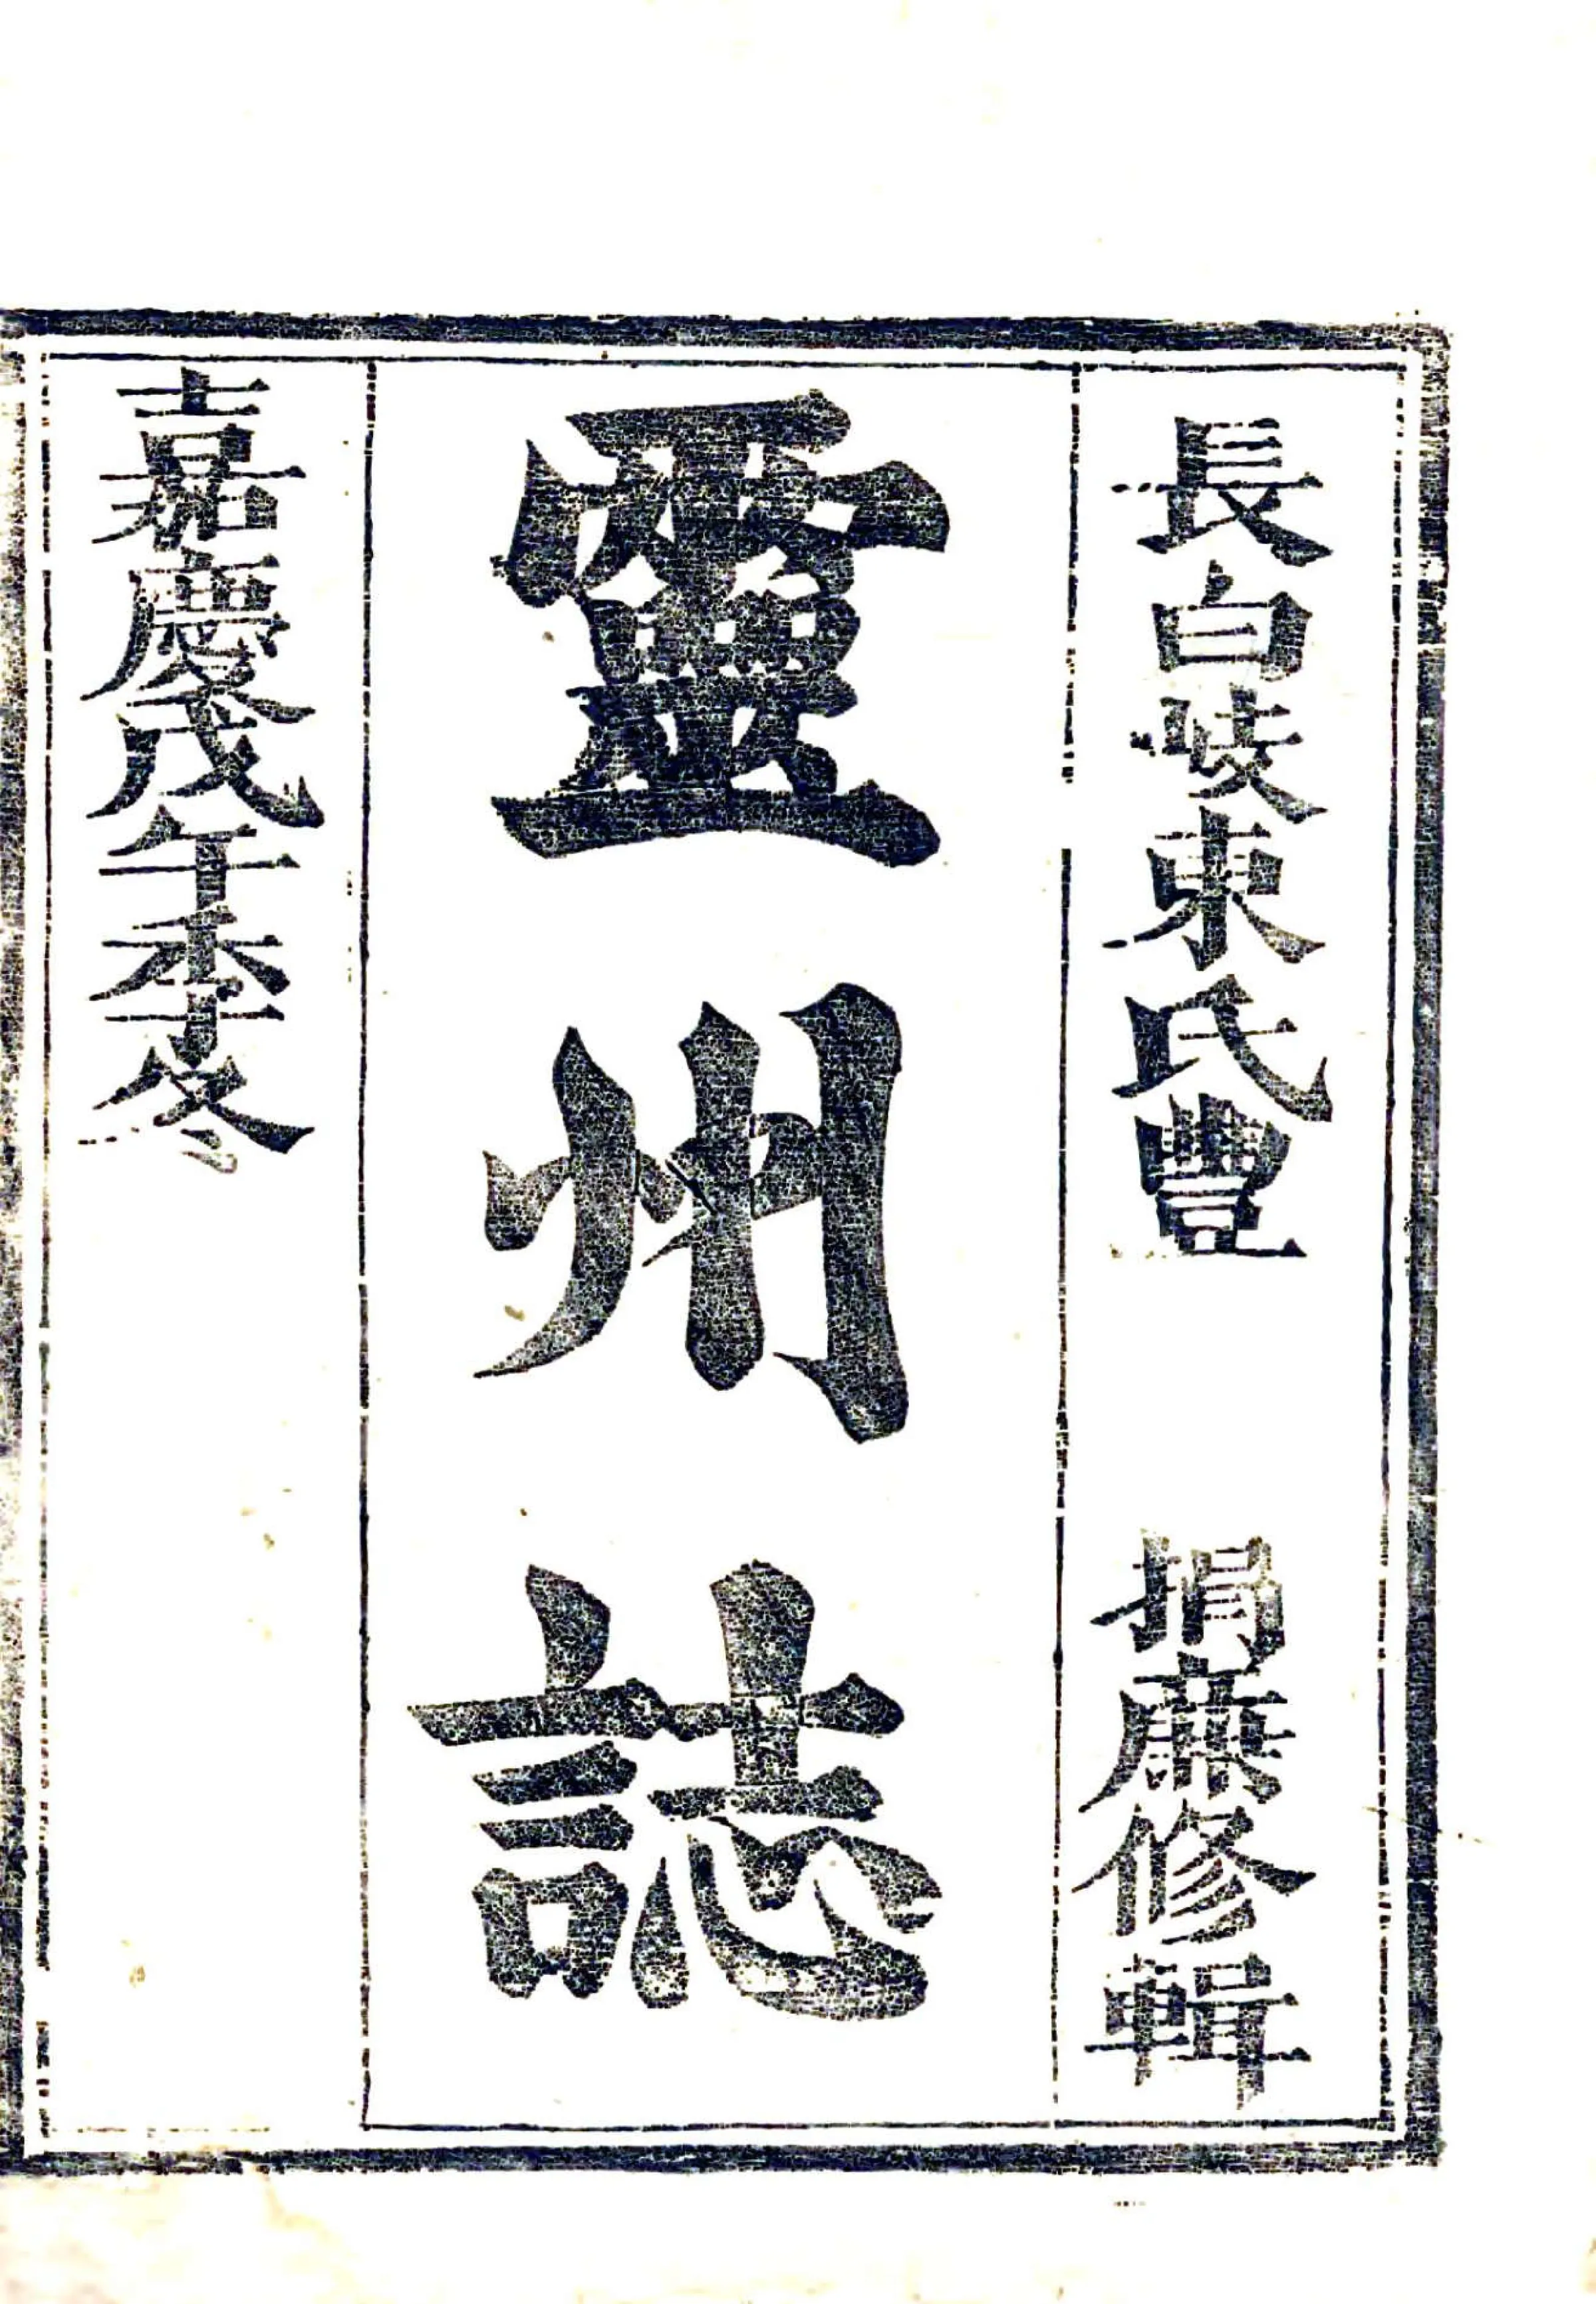 長白岐東氏豐　捐廉修輯
靈州誌
嘉慶戊午季冬